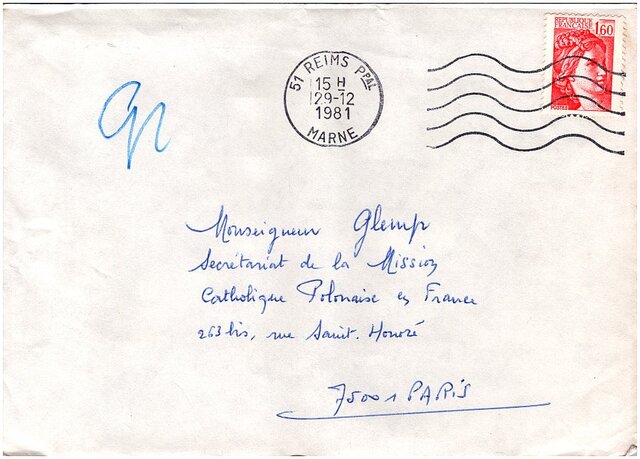 REPUBLIQUE
FRANÇAISE
1,60
POSTES
51 REIMS Ppal
15 H
29-12
1981
MARNE
Monseigneur Glemp
Secrétariat de la Mission
Catholique Polonaise en France
263 bis, rue Saint. Honoré
75001 PARIS